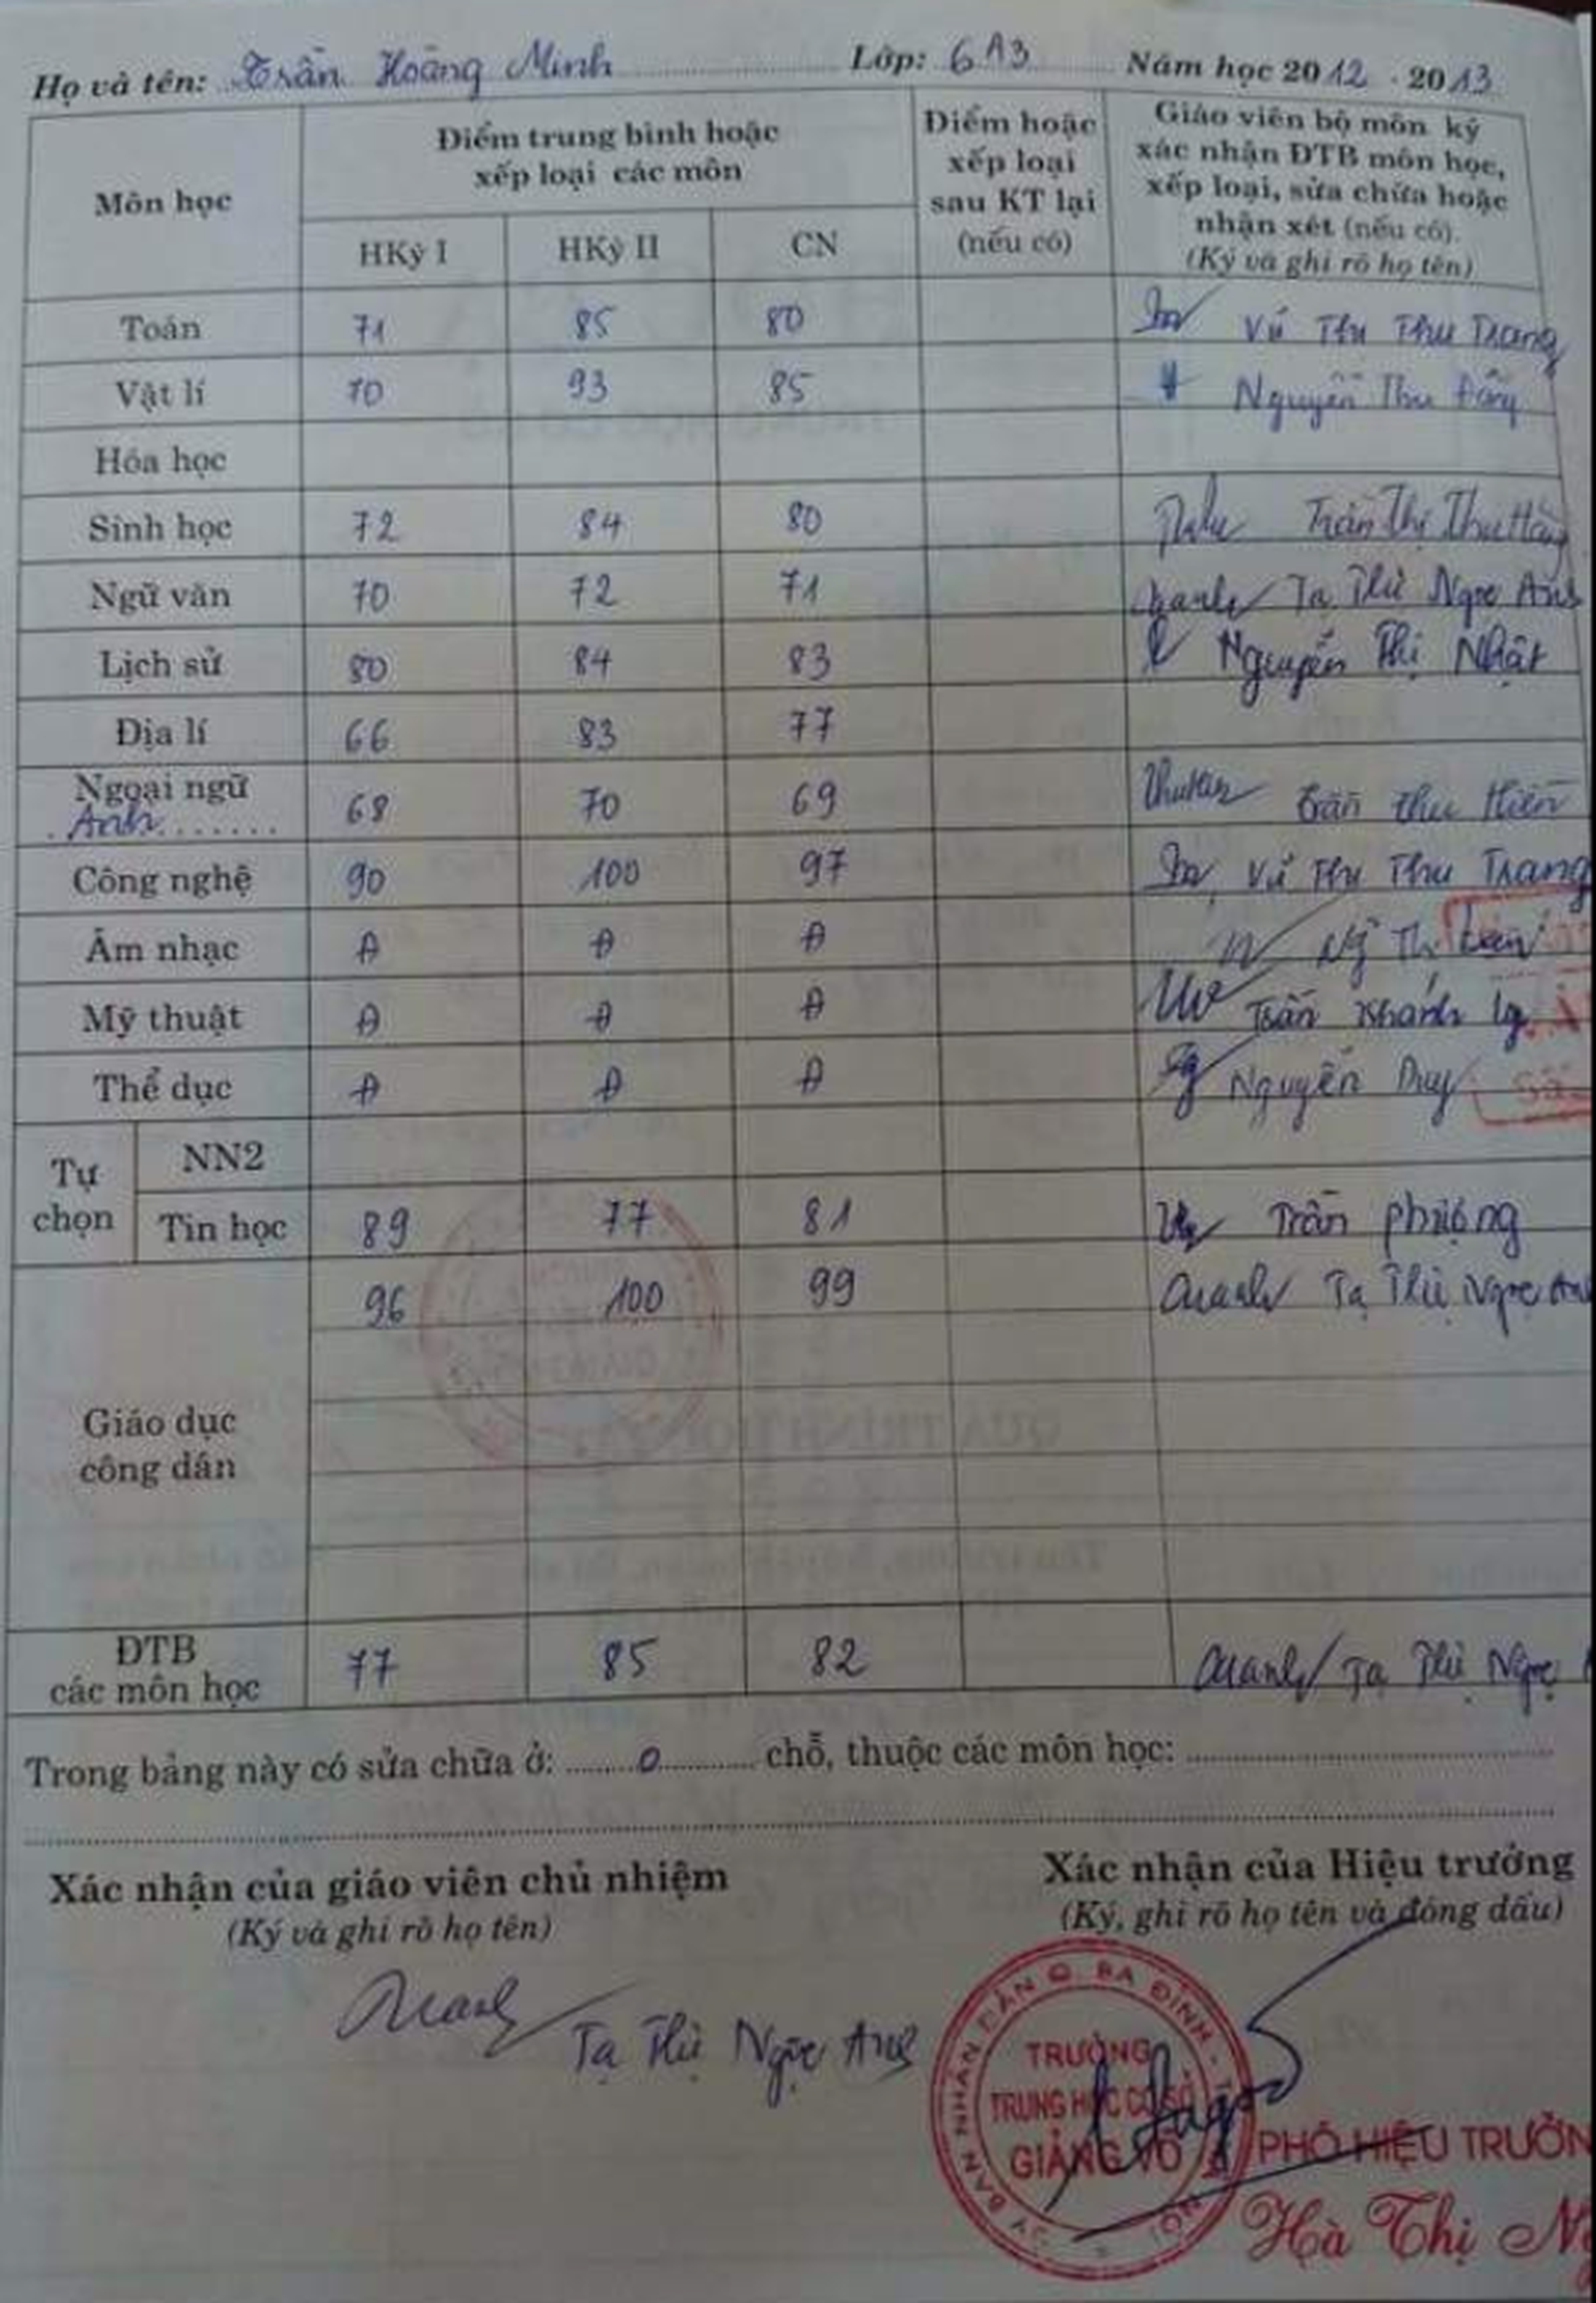 Họ và tên: Trần Hoàng Minh Lớp: 6A3 Năm học 2012 - 2013
Môn học
Điểm trung bình hoặc
xếp loại các môn
HKỳ I HKỳ II CN
Điểm hoặc
xếp loại
sau KT lại
(nếu có)
Giáo viên bộ môn ký
xác nhận ĐTB môn học,
xếp loại, sửa chữa hoặc
nhận xét (nếu có).
(Ký và ghi rõ họ tên)
Toán 71 85 80 Vũ Thu Trang
Vật lí 70 93 85 Nguyễn Thu
Hóa học
Sinh học 72 84 80 Trần Thị Thu Hằng
Ngữ văn 70 72 71 Tạ Thị Ngọc Anh
Lịch sử 80 84 83 Nguyễn Thị Nhật
Địa lí 66 83 77
Ngoại ngữ
Anh 68 70 69 Trần Thu Hiền
Công nghệ 90 100 97 Vũ Thu Trang
Âm nhạc Đ Đ Đ
Mỹ thuật Đ Đ Đ Trần Khánh
Thể dục Đ Đ Đ Nguyễn Duy
Tự
chọn
NN2
Tin học 89 77 81 Trần Phượng
Giáo dục
công dân
96 100 99 Tạ Thị Ngọc
ĐTB
các môn học
77 85 82 Tạ Thị Ngọc
Trong bảng này có sửa chữa ở: 0 chỗ, thuộc các môn học:
Xác nhận của giáo viên chủ nhiệm
(Ký và ghi rõ họ tên)
Tạ Thị Ngọc Anh
Xác nhận của Hiệu trưởng
(Ký, ghi rõ họ tên và đóng dấu)
ỦY BAN NHÂN DÂN Q. BA ĐÌNH
TRƯỜNG
TRUNG HỌC CƠ SỞ
GIẢNG VÕ
PHÓ HIỆU TRƯỞN
Hà Thị